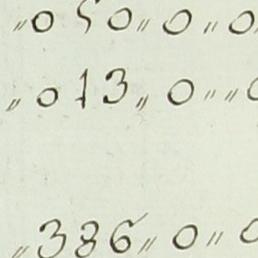 〃050〃0〃0
〃013〃0〃〃0
〃386〃0〃0